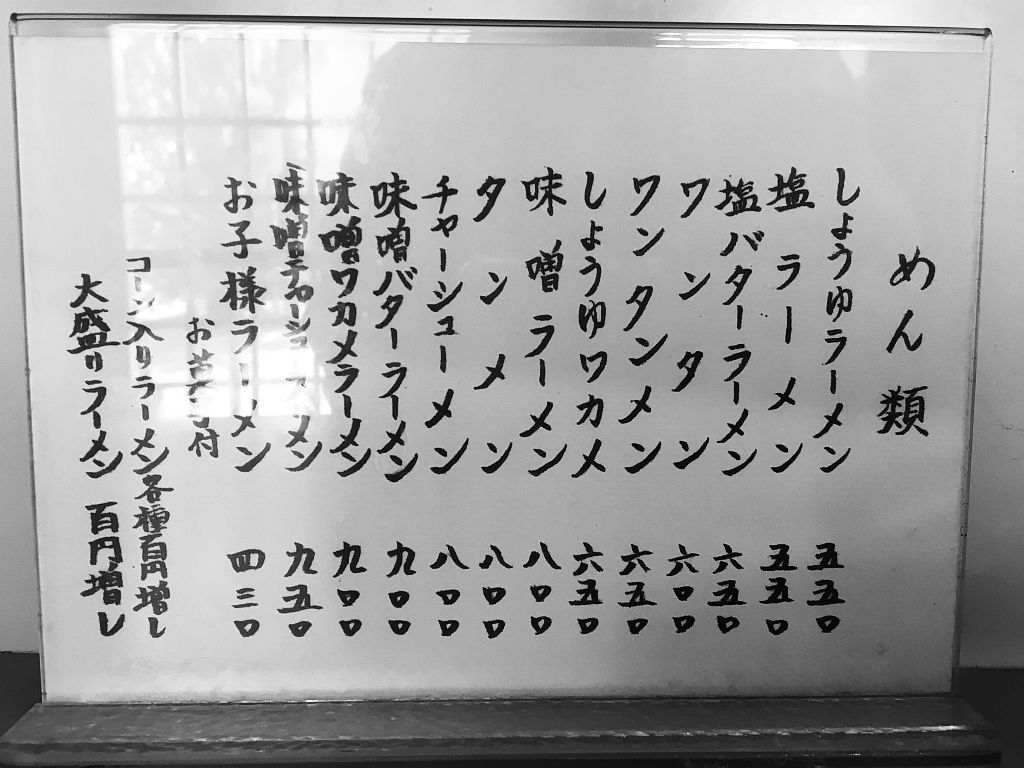 めん類
しょうゆラーメン 五五〇
塩ラーメン 五五〇
塩バターラーメン 六五〇
ワンタン 六〇〇
ワンタンメン 六五〇
しょうゆワカメ 六五〇
味噌ラーメン 八〇〇
タンメン 八〇〇
チャーシューメン 八〇〇
味噌バターラーメン 九〇〇
味噌ワカメラーメン 九〇〇
味噌チャーシューメン 九五〇
お子様ラーメン 四三〇
お菓子付
コーン入りラーメン各種百円増し
大盛りラーメン 百円増し